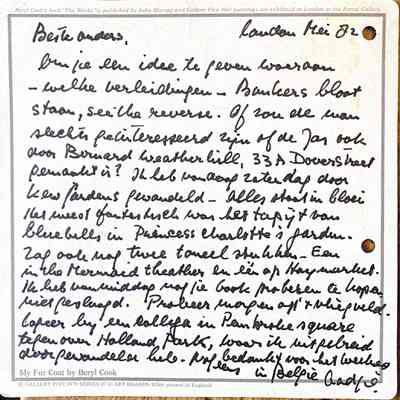 Beryl Cook's book "The Works" is published by John Murray and Gallery Five. Her paintings are exhibited in London at the Portal Gallery.
London Mei 82
Beste ouders,
Om je een idee te geven waaraan
- welke verleidingen - Bankers bloot
staan, see the reverse. Of zou de man
slechts geïnteresseerd zijn of de jas ook
door Bernard Weatherhill, 33A Doverstreet
gemaakt is? Ik heb vandaag zaterdag door
Kew Gardens gewandeld - alles staat in bloei
Het meest fantastisch was het tapijt van
bluebells in Princess Charlotte's garden.
Zag ook nog twee toneel stukken - Een
in the Mermaid theather en één op Haymarket.
Ik heb vanmiddag nog je book proberen te kopen
niet geslaagd. Probeer morgen op 't vliegveld.
Logeer bij een collega in Pembroke square
tegenover Holland Park, waar ik uitgebreid
door gewandeld heb. Nog bedankt voor het weekend
nog eens in België
My Fur Coat by Beryl Cook